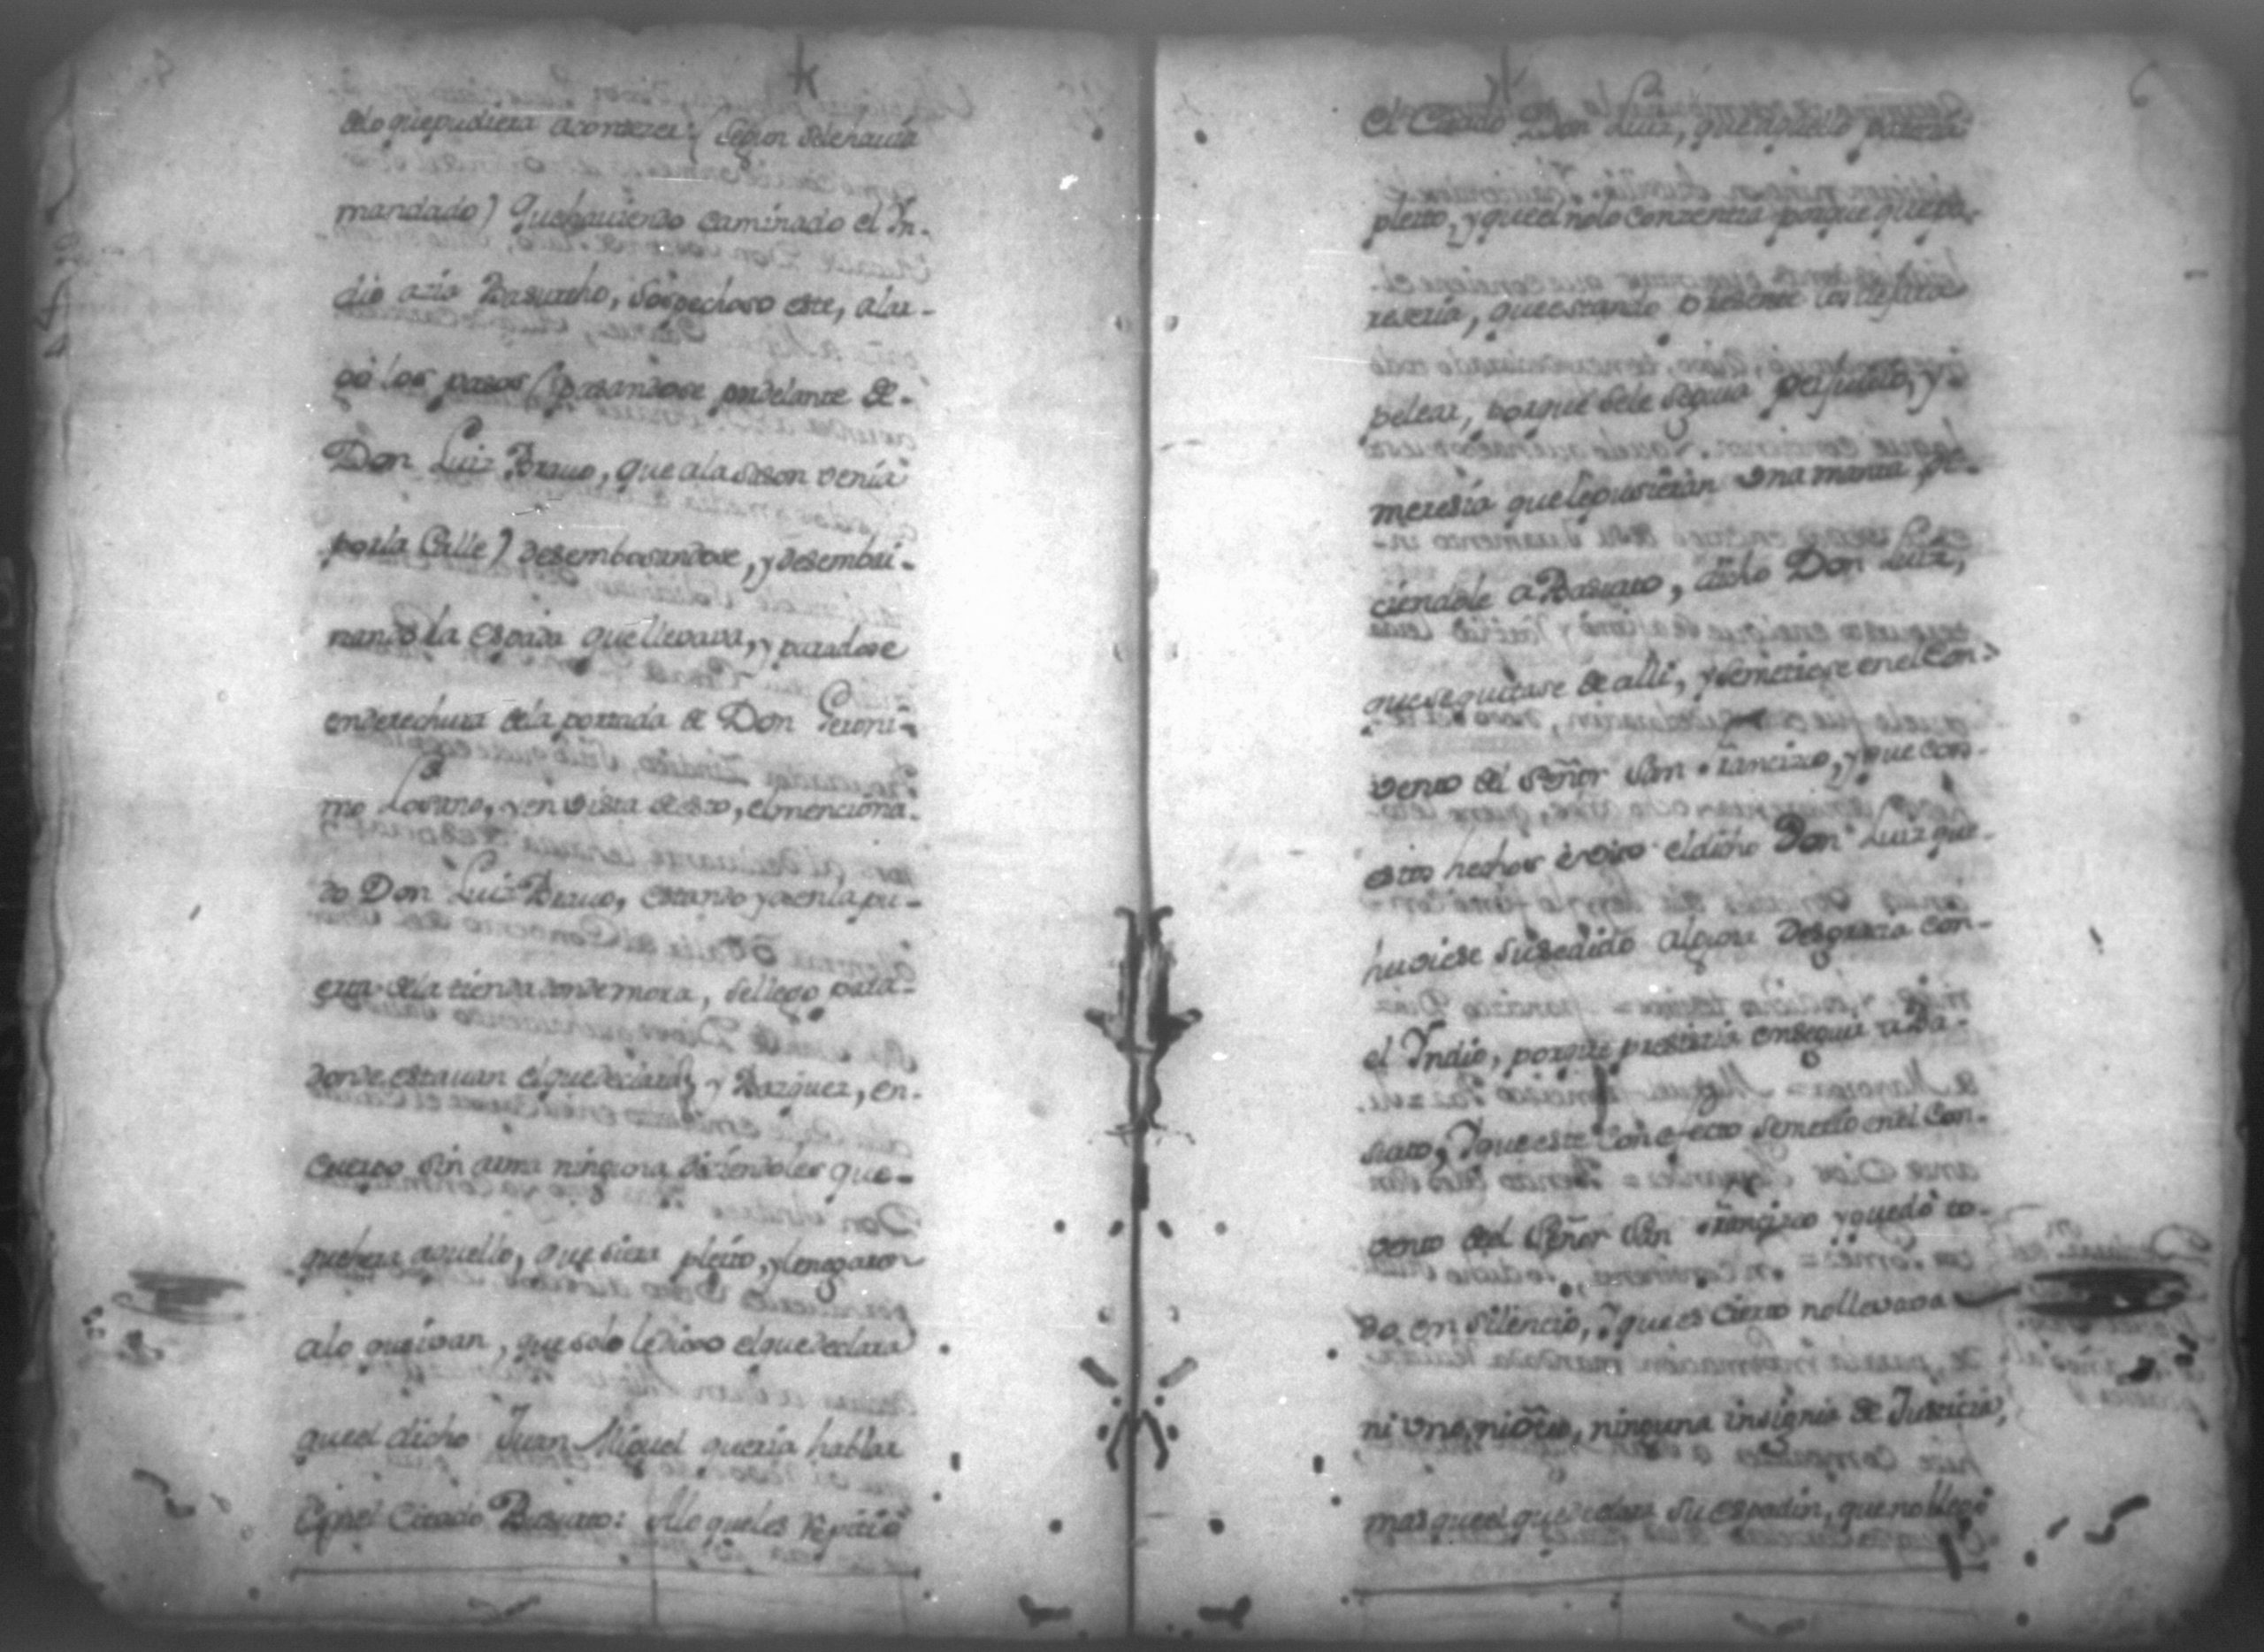 delo quepudiera acontezer (segun selehauia
mandado) Quehauiendo caminado el Yn-
dio azia Basurtho, sospechoso este, alar-
gò los pasos (pasandose pordelante de
Don Luiz Brauo, que ala sason venía
porla Calle) desembosandose, y desembai-
nando la espada quellevava, y paradose
enderechura dela portada de Don Geroni-
mo Lovano, y en vista desto, el menciona-
do Don Luiz Brauo, estando ya en la pu-
erta dela tienda donde mora, sellego para
donde estauan elquedeclara, y Bazquez, en
cuerpo sin arma ninguna disiendoles que
quehera aquello, que siera pleito, y lenegaron
alo queivan, que solo le dixo elquedeclara
queel dicho Juan Miguel queria hablar
con el Citado Basurto: Alo queles repitio
el Citado Don Luiz, que aquello parecia
pleito, y queel nolo consentia porque quepa-
reseria, queestando presente los dejase
pelear, porque sele seguia perjuicio, y
meresia quelepusieran una manta, di-
ciendole a Basurto, dicho Don Luiz,
quesequitase de alli, y semetiese enel Con-
vento del Señor San Francisco, y que con
esto hechos evito eldicho Don Luiz que
huviese susedido alguna desgracia con
el Yndio, porque proseguia enseguir a Ba-
surto, Yqueeste con efecto semetio enel Con-
vento del Señor San Francisco y quedò to-
do en silencio, Yquees cierto nollevava
ni uno, ni otro, ninguna insignia de Justicia,
mas queel quedeclara su espadin, que no llegó
6